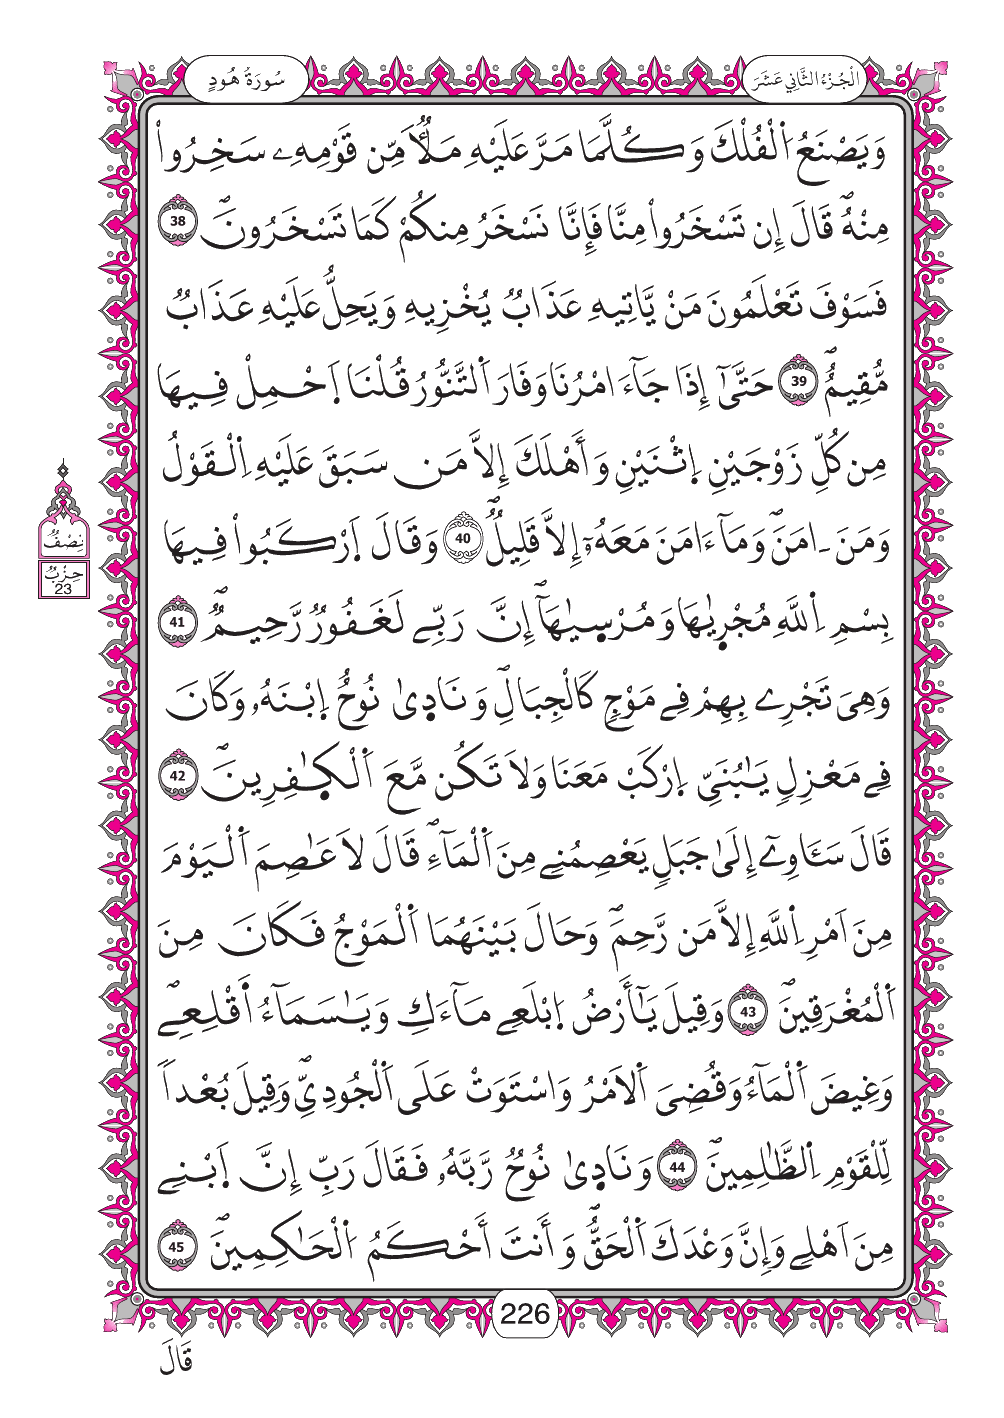 سُورَةُ هُودٍ
الْجُزْءُ الثَّانِي عَشَرَ
وَيَصْنَعُ اُ۬لْفُلْكَ وَكُلَّمَا مَرَّ عَلَيْهِ مَلَأٞ مِّن قَوْمِهِۦ سَخِرُواْ
مِنْهُۖ قَالَ إِن تَسْخَرُواْ مِنَّا فَإِنَّا نَسْخَرُ مِنكُمْ كَمَا تَسْخَرُونَۖ 38
فَسَوْفَ تَعْلَمُونَ مَنْ يَّاتِيهِ عَذَابٞ يُخْزِيهِ وَيَحِلُّ عَلَيْهِ عَذَابٞ
مُّقِيمٌۖ 39 حَتَّىٰٓ إِذَا جَآءَ امْرُنَا وَفَارَ اَ۬لتَّنُّورُ قُلْنَا اَ۪حْمِلْ فِيهَا
مِن كُلِّ زَوْجَيْنِ اِ۪ثْنَيْنِ وَأَهْلَكَ إِلَّا مَن سَبَقَ عَلَيْهِ اِ۬لْقَوْلُ
وَمَنَ اٰمَنَۖ وَمَآ ءَامَنَ مَعَهُۥٓ إِلَّا قَلِيلٞۖ 40 وَقَالَ اَ۪رْكَبُواْ فِيهَا
بِسْمِ اِ۬للَّهِ مُجْر۪ىٰهَا وَمُرْس۪ىٰهَآۖ إِنَّ رَبِّے لَغَفُورٞ رَّحِيمٞۖ 41
وَهِيَ تَجْرِے بِهِمْ فِے مَوْجٖ كَالْجِبَالِۖ وَنَاد۪ىٰ نُوحٌ اِ۪بْنَهُۥ وَكَانَ
فِے مَعْزِلٖ يَٰبُنَيِّ اِ۪رْكَبْ مَعَنَا وَلَا تَكُن مَّعَ اَ۬لْكٰ۪فِرِينَۖ 42
قَالَ سَـَٔاوِےٓ إِلَىٰ جَبَلٖ يَعْصِمُنِے مِنَ اَ۬لْمَآءِۖ قَالَ لَا عَاصِمَ اَ۬لْيَوْمَ
مِنَ اَمْرِ اِ۬للَّهِ إِلَّا مَن رَّحِمَۖ وَحَالَ بَيْنَهُمَا اَ۬لْمَوْجُ فَكَانَ مِنَ
اَ۬لْمُغْرَقِينَۖ 43 وَقِيلَ يَٰٓأَرْضُ اُ۪بْلَعِے مَآءَكِ وَيَٰسَمَآءُ أَقْلِعِےۖ
وَغِيضَ اَ۬لْمَآءُ وَقُضِيَ اَ۬لَامْرُ وَاسْتَوَتْ عَلَى اَ۬لْجُودِيِّۖ وَقِيلَ بُعْداٗ
لِّلْقَوْمِ اِ۬لظَّٰلِمِينَۖ 44 وَنَاد۪ىٰ نُوحٞ رَّبَّهُۥ فَقَالَ رَبِّ إِنَّ اَ۪بْنِے
مِنَ اَهْلِے وَإِنَّ وَعْدَكَ اَ۬لْحَقُّۖ وَأَنتَ أَحْكَمُ اُ۬لْحَٰكِمِينَۖ 45
نِصْفٌ
حِزْبٌ
23
226
قَالَ